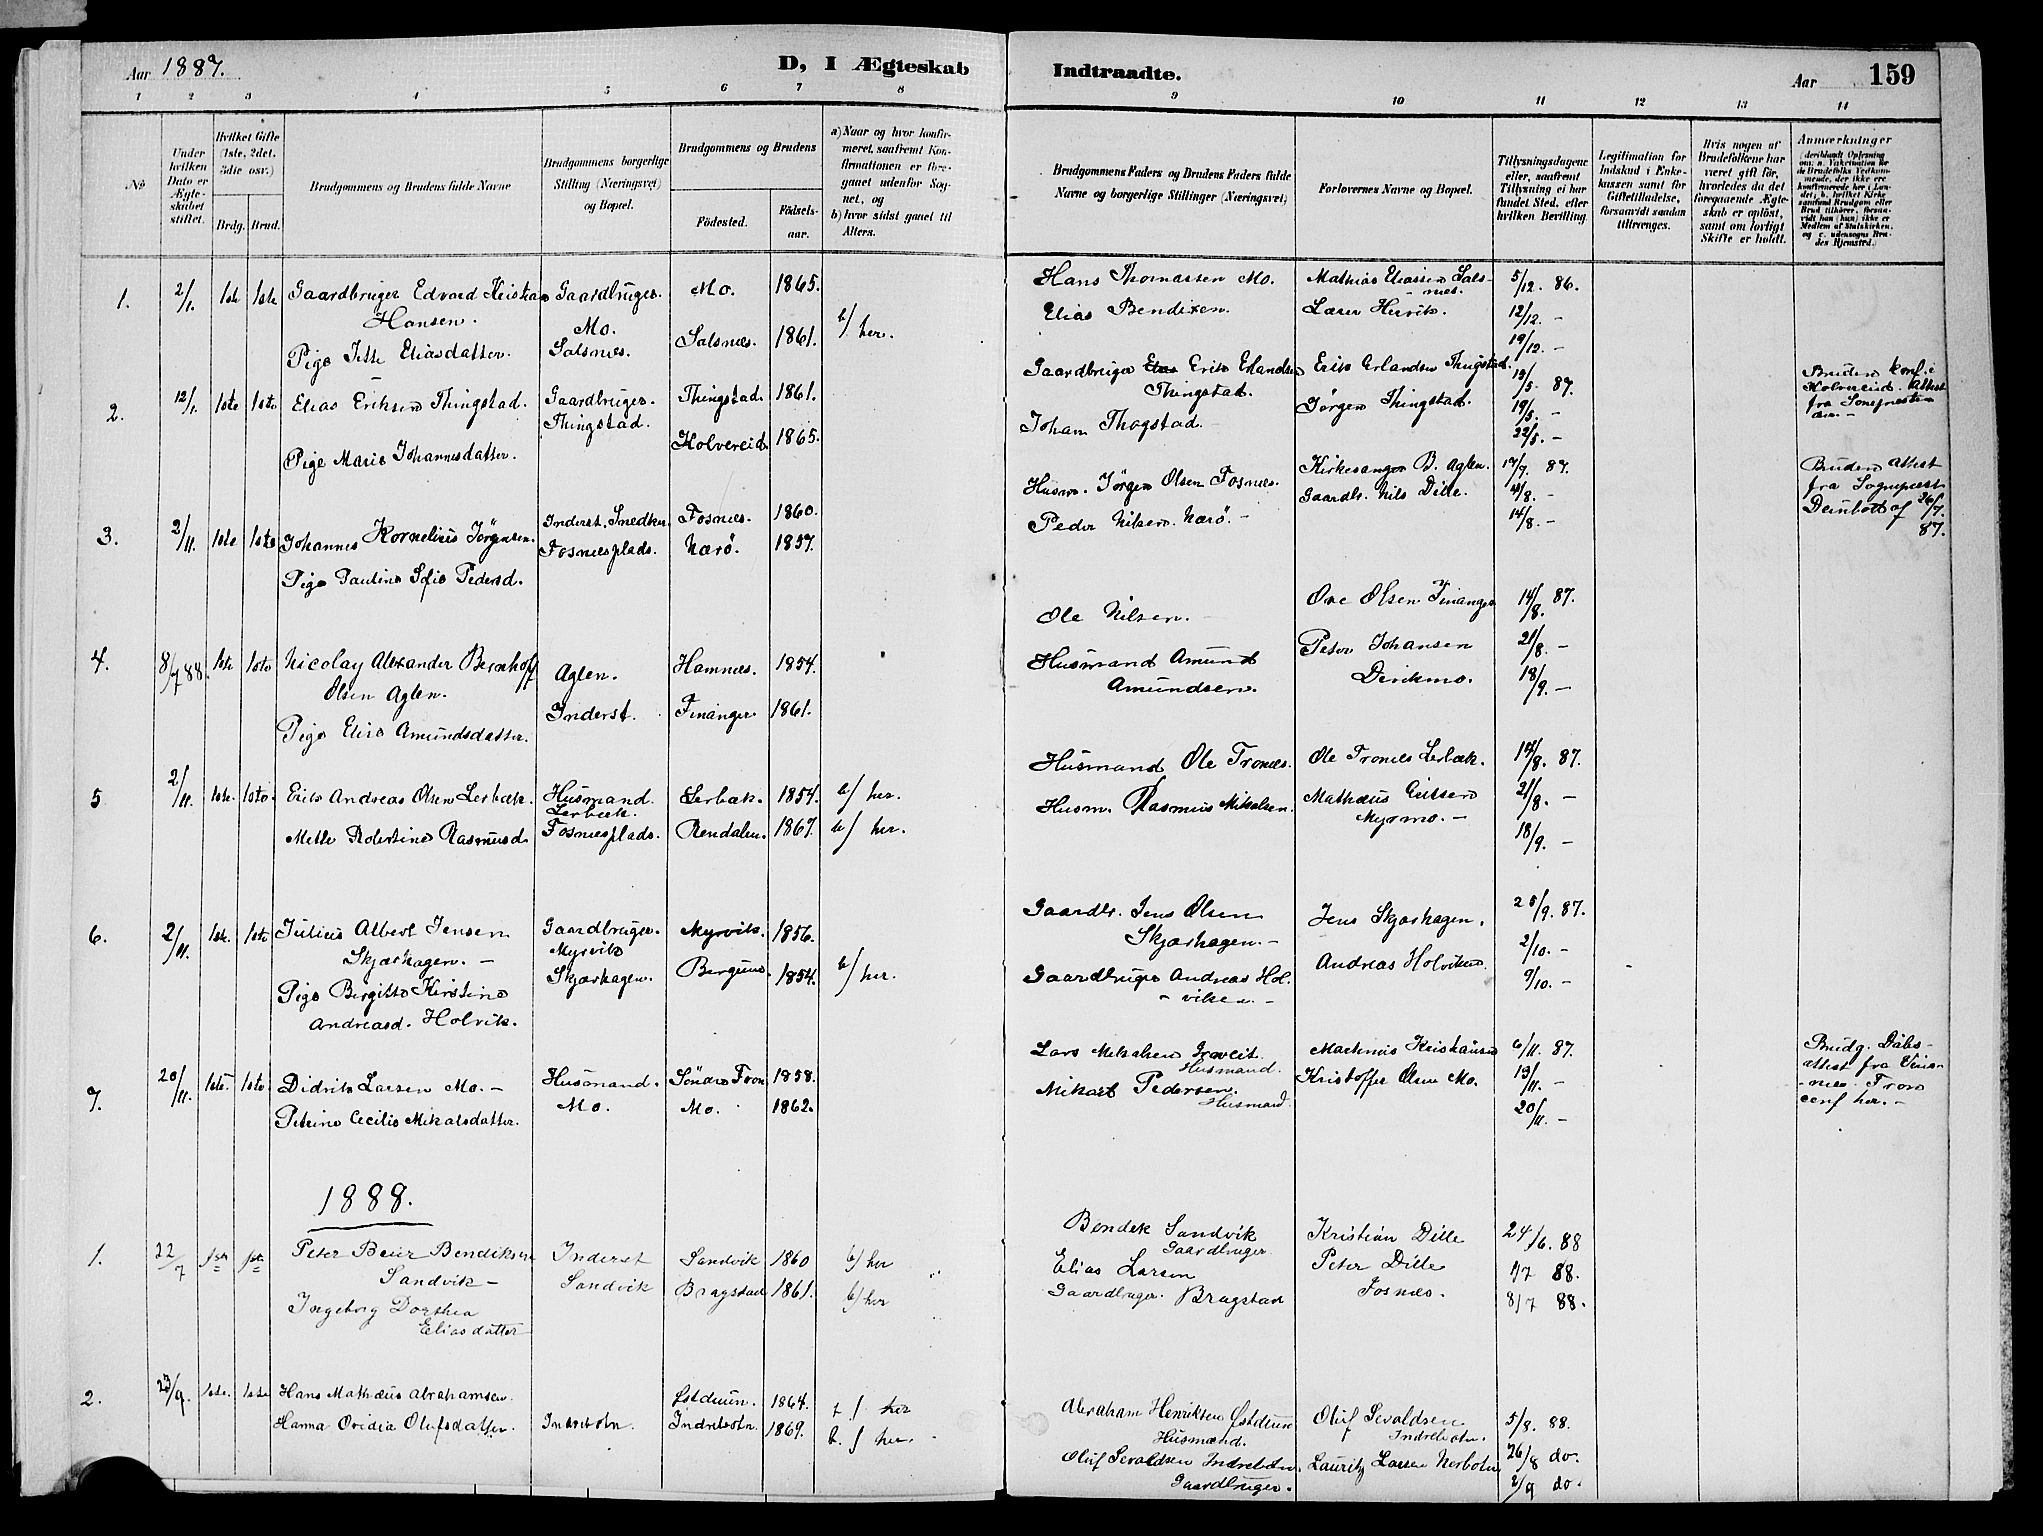 Aar 1887.
D, I Ægteskab Indtraadte.
Aar 159
1 2 3 4 5 6 7 8 9 10 11 12 13 14
No
Under hvilken Dato er Ægteskabet stiftet.
Hvilket Gifte (1ste, 2det, 3die osv.)
Brdg. Brud.
Brudgommens og Brudens fulde Navne
Brudgommens borgerlige Stilling (Næringsvei) og Bopæl.
Brudgommens og Brudens
Födested. Födselsaar.
a) Naar og hvor konfirmeret, saafremt Konfirmationen er foregaaet udenfor Sognet, og
b) hvor sidst gaaet til Alters.
Brudgommens Faders og Brudens Faders fulde Navne og borgerlige Stillinger (Næringsvei)
Forlovernes Navne og Bopæl.
Tillysningsdagene eller, saafremt Tillysning ei har fundet Sted, efter hvilken Bevilling.
Legitimation for Indskud i Enkekassen samt for Giftetilladelse, forsaavidt saadan tiltrænges.
Hvis nogen af Brudefolkene har været gift för, hvorledes da det foregaaende Ægteskab er oplöst, samt om lovligt Skifte er holdt.
Anmærkninger
1. 2/1. 1ste 1ste Gaardbruger Edvard Kristian Hansen. Gaardbruger. Mo. Mo. 1865.
Pige Jette Eliasdatter. Salsnæs. Salsnæs. 1861. b/ her.
Hans Thomassen Mo. Mathias Eliassen Salsnæs. 5/12. 86.
Elias Bendixen. 12/12. –
19/12. –
2. 12/1. 1ste 1ste Elias Eriksen Thingstad. Gaardbruger. Thingstad. Thingstad. 1861.
Pige Marie Johannesdatter. Kolvereid. 1865.
Gaardbruger Erik Erlandsen Thingstad. Erik Erlandsen Thingstad. 87.
Johan Thogstad. Jørgen Thingstad. 19/5. –
22/5. –
Bruden konf. i Kolvereid. Attest fra
3. 2/11. 1ste 1ste Johannes Kornelius Jörgensen. Inderst. Snedker. Fosnæsplads. Fosnæs. 1860.
Pige Pauline Sofie Pedersd. Nærö. 1857.
Husm. Jörgen Olsen Fosnæs. Kirkesanger B. Aglen. 87.
Peder Nilsen. Nærö. – Gaardb. Nils Dille. –
14/8. –
Bruden Attest fra Sognepræst Deinboll af 26/7. 87.
4. 8/7 88. 1ste 1ste Nicolay Alexander Bernhoff Olsen Aglen. Aglen. Hamnæs. 1854.
Pige Elise Amundsdatter. Inderst. Finanger. 1861.
Ole Nilsen. Ove Olsen Finanger 14/8. 87.
Husmand Amund Amundsen. Peter Johansen Devikmo. 21/8. –
18/9. –
5 2/11. 1ste. 1ste. Erik Andreas Olsen Lerbæk. Husmand. Lerbæk. Lerbæk. 1854. b/ her.
Mette Robertine Rasmusd. Fosnæsplads. Rendalen. 1867. b/ her.
Husmand Ole Fronæs. Ole Fronæs Lerbæk. 14/8. 87.
Husm. Rasmus Mikalsen. Mathæus Myrmo. – 21/8. –
18/9. –
6. 2/11. 1ste. 1ste Julius Albert Jensen Skjærhagen. – Gaardbruger. Myrvik Myrvik. 1856.
Pige Birgitte Kirstine Andreasd. Holvik. Skjærhagen. 1854. b/ her.
Gaardbr. Jens Olsen Skjærhagen. – Jens Skjærhagen. 25/9. 87.
Gaardbruger Andreas Holviken. – Andreas Holviken 2/10. –
9/10. –
7. 20/11. 1ste. 1ste. Didrik Larsen Mo. – Husmand. Mo. Söndre Fron 1858.
Petrine Cecilie Mikalsdatter. Mo. 1862.
Lars Mikalsen Husmand. Martinus Kristiansen 6/11. 87.
Mikael Pedersen. Husmand. Kristoffer Olsen Mo. 13/11. –
20/11. –
Brudg. Daabsattest fra conf her. –
1888.
1. 22/7 1ste 1ste Peter Beier Bendiksen Sandvik – Inderst Sandvik Sandvik 1860 b/ her
Ingeborg Dorthea Eliasdatter Bragstad 1861. b/ her
Bendik Sandvik Gaardbruger Kristian Dille 24/6. 88
Elias Larsen Gaardbruger. Bragstad Peter Dille Fosnæs. 1/7 88.
8/7 88.
2. 23/9. 1ste. 1ste Hans Mathæus Abrahamsen. Østduun. 1864. her
Hanna Ovidia Olufsdatter. Indrebotn. Indrebotn 1869. b. / her.
Abraham Henriksen Østduun Husmand. Oluf Sevaldsen Indrebotn. 5/8. 88.
Oluf Sevaldsen Indrebotn. Gaardbruger. Lauritz Larsen Nerbotn 26/8 do.
2/9 do.